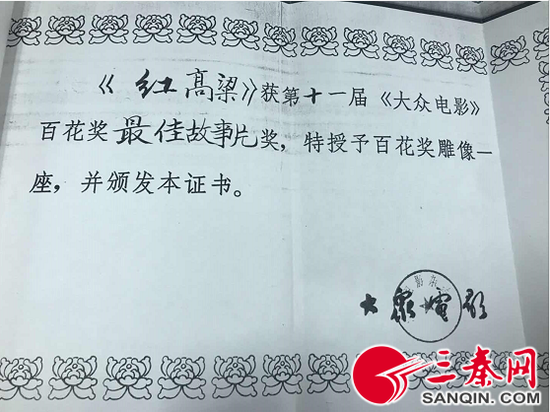 《红高梁》获第十一届《大众电影》
百花奖最佳故事片奖，特授予百花奖雕像一
座，并颁发本证书。
大众电影
三秦网
SANQIN.COM